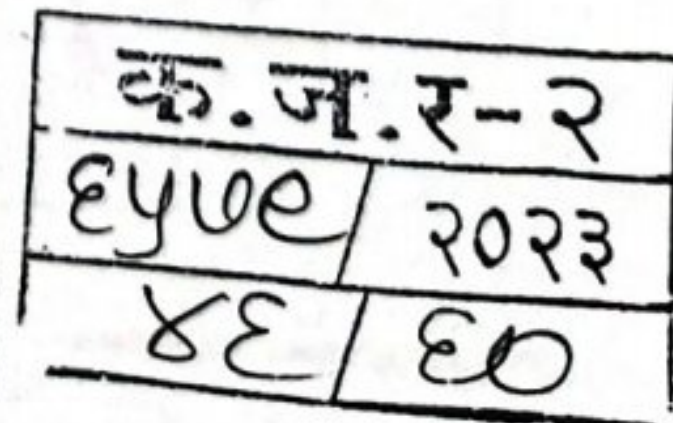 क.ज.र-२
६५७९/२०२३
४६/६०